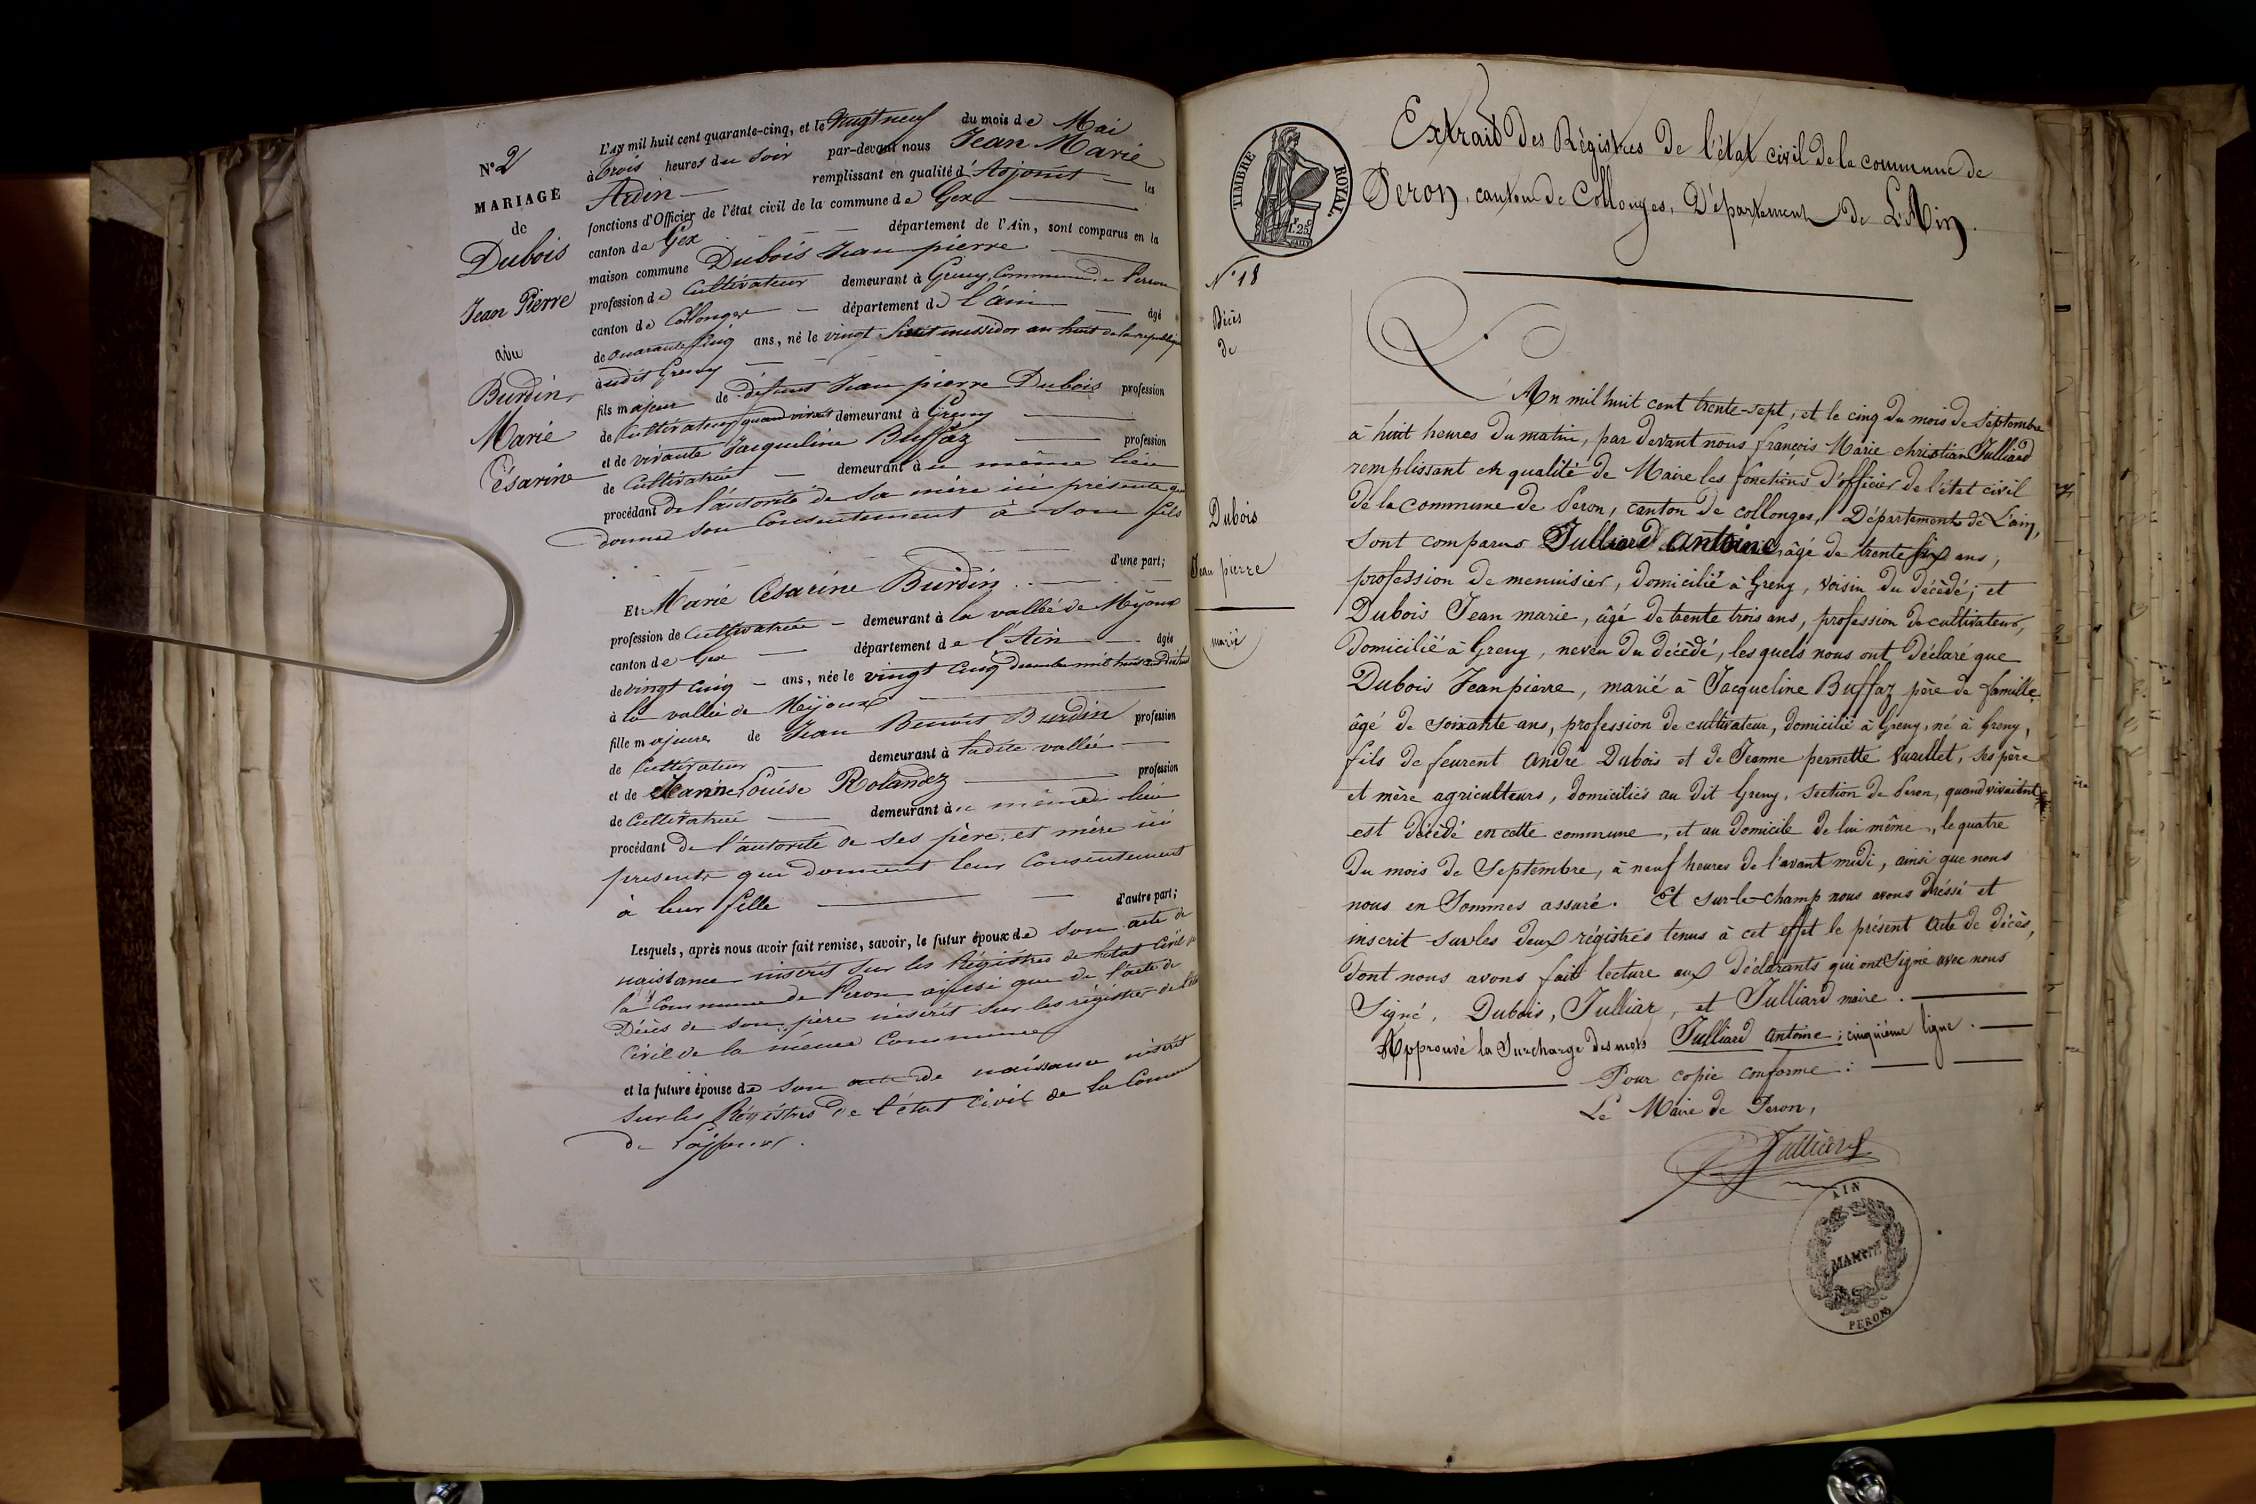 N° 2
MARIAGE
de
Dubois
Jean Pierre
avec
Burdin,
Marie
Césarine
L'AN mil huit cent quarante-cinq, et le vingt neuf du mois de Mai
à trois heures du soir par-devant nous Jean Marie
Ardin remplissant en qualité d'Adjoint les
fonctions d'Officier de l'état civil de la commune de Gex
canton de Gex département de l'Ain, sont comparus en la
maison commune Dubois Jean pierre
profession de Cultivateur demeurant à Greny, Commune de Peron
canton de Collonges département de l'ain âgé
de quarante cinq ans, né le vingt huit messidor an huit de la république
audit Greny
fils majeur de défunt Jean pierre Dubois profession
de Cultivateur quand vivait demeurant à Greny
et de vivante Jacqueline Buffaz profession
de Cultivatrice demeurant à u même lieu
procédant de l'autorité de sa mère ici présente qui
donne son Consentement à son fils
d'une part;
Et Marie Césarine Burdin
profession de Cultivatrice demeurant à la vallée de Mijoux
canton de Gex département de l'Ain âgée
de vingt cinq ans, née le vingt cinq mil huit cent
à la vallée de Mijoux
fille majeure de Jean Benoit Burdin profession
de Cultivateur demeurant à ladite vallée
et de Louise Rolandez profession
de Cultivatrice demeurant à u même lieu
procédant de l'autorité de ses père et mère ici
présents qui donnent leur Consentement
à leur fille d'autre part;
Lesquels, après nous avoir fait remise, savoir, le futur époux de son acte de
naissance inscrit sur les Régistres de l'état Civil de
la Commune de Peron ainsi que de l'acte de
Décès de son père inscrit sur les régistres de l'état
Civil de la même Commune
et la future épouse de son acte de naissance inscrit
sur les Régistres de l'état Civil de la Commune
de
TIMBRE ROYAL.
Extrait des Régistres de l'état civil de la commune de
Peron, canton de Collonges, Département de L'Ain.
N° 18
Décès
de
Dubois
Jean pierre
marié
L'An mil huit cent trente-sept, et le cinq du mois de Septembre
à huit heures du matin, par devant nous françois Marie christian Julliard
remplissant en qualité de Maire les fonctions d'officier de l'état civil
de la commune de Peron, canton de collonges, Département de L'ain,
sont comparus Julliard antoine, âgé de trente six ans,
profession de menuisier, domicilié à Greny, voisin du décédé; et
Dubois Jean marie, âgé de trente trois ans, profession de cultivateur,
domicilié à Greny, neveu du décédé, lesquels nous ont déclaré que
Dubois Jean pierre, marié à Jacqueline Buffaz père de famille,
âgé de soixante ans, profession de cultivateur, domicilié à Greny, né à Greny,
fils de feurent andré Dubois et de Jeanne pernette Vuaillet, ses père
et mère agriculteurs, domiciliés au dit Greny, section de Peron, quand vivaient
est décédé en cette commune, et au domicile de lui même, le quatre
du mois de Septembre, à neuf heures de l'avant midi, ainsi que nous
nous en Sommes assuré. Et sur-le-champ nous avons dréssé et
inscrit sur les deux régistres tenus à cet effet le présent acte de décès,
dont nous avons fait lecture aux déclarants qui ont Signé avec nous
Signé, Dubois, Julliar, et Julliard maire.
Approuvé la Surcharge des mots Julliard antoine; cinquième ligne.
Pour copie conforme:
Le Maire de Peron,
Julliard
AIN
MAIRIE
PERON